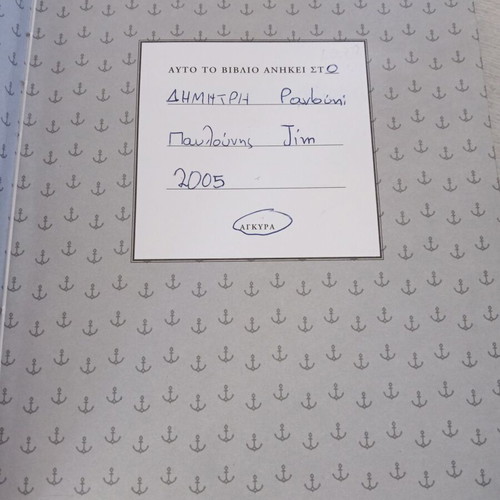 ΑΥΤΟ ΤΟ ΒΙΒΛΙΟ ΑΝΗΚΕΙ ΣΤΟ
ΔΗΜΗΤΡΗ
Παυλούνης Τίνη
2005
ΑΓΚΥΡΑ